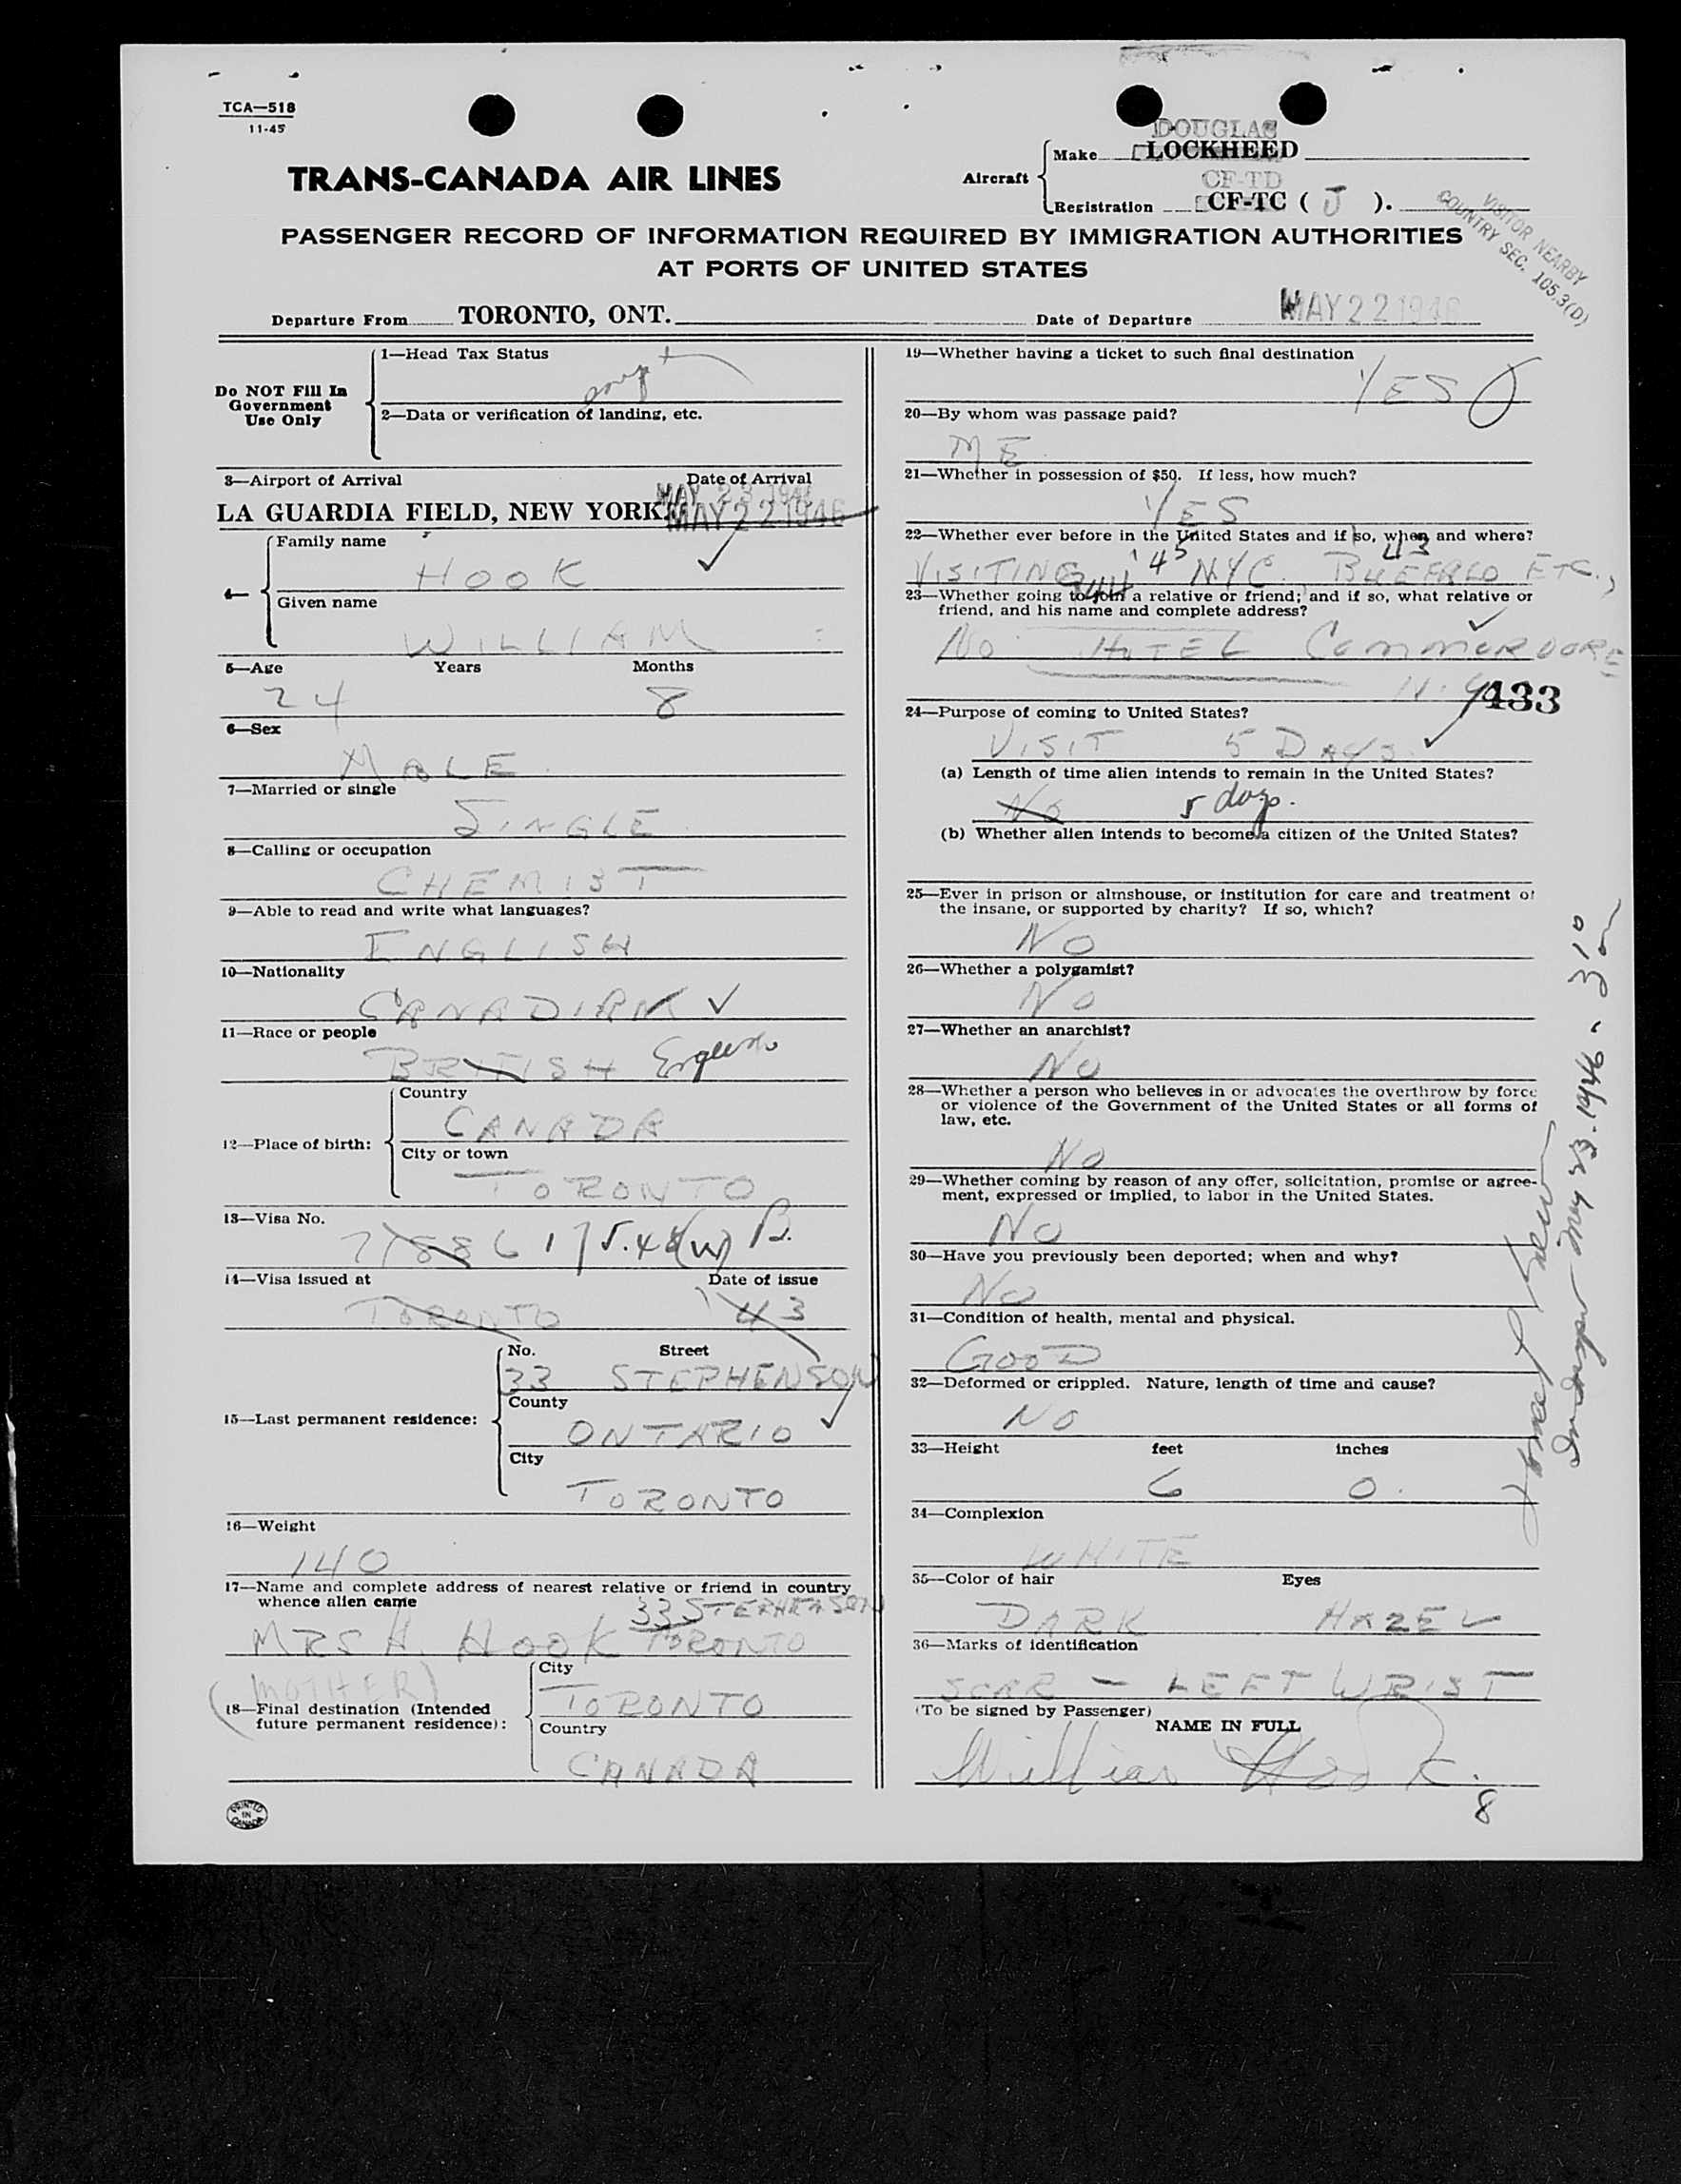 TCA—518
11-45
DOUGLAS
Make LOCKHEED
TRANS-CANADA AIR LINES
Aircraft
CF-TD
Registration CF-TC ( J ).
VISITOR NEARBY
COUNTRY SEC. 105.3(D)
PASSENGER RECORD OF INFORMATION REQUIRED BY IMMIGRATION AUTHORITIES
AT PORTS OF UNITED STATES
Departure From TORONTO, ONT.
Date of Departure MAY 22 1946
Do NOT Fill In
Government
Use Only
1—Head Tax Status
2—Data or verification of landing, etc.
3—Airport of Arrival Date of Arrival
MAY 23 1946
LA GUARDIA FIELD, NEW YORK. MAY 22 1946
4—
Family name
HOOK
Given name
WILLIAM
5—Age Years Months
24 8
6—Sex
MALE
7—Married or single
SINGLE
8—Calling or occupation
CHEMIST
9—Able to read and write what languages?
ENGLISH
10—Nationality
CANADIAN ✓
11—Race or people
BRITISH
12—Place of birth:
Country
CANADA
City or town
TORONTO
13—Visa No.
14—Visa issued at Date of issue
TORONTO '43
15—Last permanent residence:
No. Street
33 STEPHENSON
County
ONTARIO
City
TORONTO
16—Weight
140
17—Name and complete address of nearest relative or friend in country
whence alien came
33 STEPHENSON
MRS H HOOK TORONTO
(MOTHER)
18—Final destination (Intended
future permanent residence):
City
TORONTO
Country
CANADA
PRINTED
IN
CANADA
19—Whether having a ticket to such final destination
YES
20—By whom was passage paid?
ME
21—Whether in possession of $50. If less, how much?
YES
22—Whether ever before in the United States and if so, when and where?
VISITING '45 NYC. BUFFALO 43 ETC.,
23—Whether going to join a relative or friend; and if so, what relative or
friend, and his name and complete address?
NO HOTEL COMMORDORE
N.Y.
433
24—Purpose of coming to United States?
VISIT 5 DAYS ✓
(a) Length of time alien intends to remain in the United States?
No 5 days.
(b) Whether alien intends to become a citizen of the United States?
25—Ever in prison or almshouse, or institution for care and treatment of
the insane, or supported by charity? If so, which?
NO
26—Whether a polygamist?
NO
27—Whether an anarchist?
NO
28—Whether a person who believes in or advocates the overthrow by force
or violence of the Government of the United States or all forms of
law, etc.
NO
29—Whether coming by reason of any offer, solicitation, promise or agree-
ment, expressed or implied, to labor in the United States.
NO
30—Have you previously been deported; when and why?
NO
31—Condition of health, mental and physical.
GOOD
32—Deformed or crippled. Nature, length of time and cause?
NO
33—Height feet inches
6 0.
34—Complexion
WHITE
35—Color of hair Eyes
DARK HAZEL
36—Marks of identification
SCAR – LEFT WRIST
(To be signed by Passenger)
NAME IN FULL
William Hook.
8
May 23. 1946